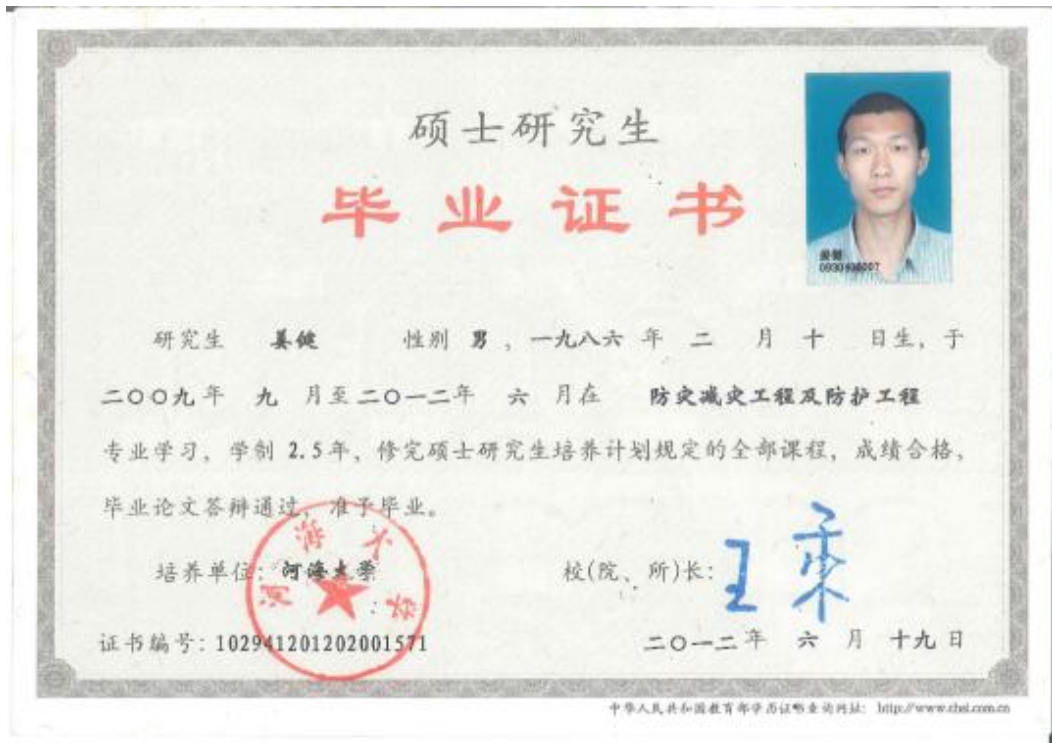 硕士研究生
毕业证书
姜健
0930490007
研究生 姜健 性别 男，一九八六 年 二 月 十 日生，于
二〇〇九年 九 月至二〇一二年 六 月在 防灾减灾工程及防护工程
专业学习，学制 2.5年，修完硕士研究生培养计划规定的全部课程，成绩合格，
毕业论文答辩通过，准予毕业。
河海大学
培养单位：河海大学
校(院、所)长：
王乘
证书编号：102941201202001571
二〇一二年 六 月 十九日
中华人民共和国教育部学历证书查询网址：http://www.chsi.com.cn